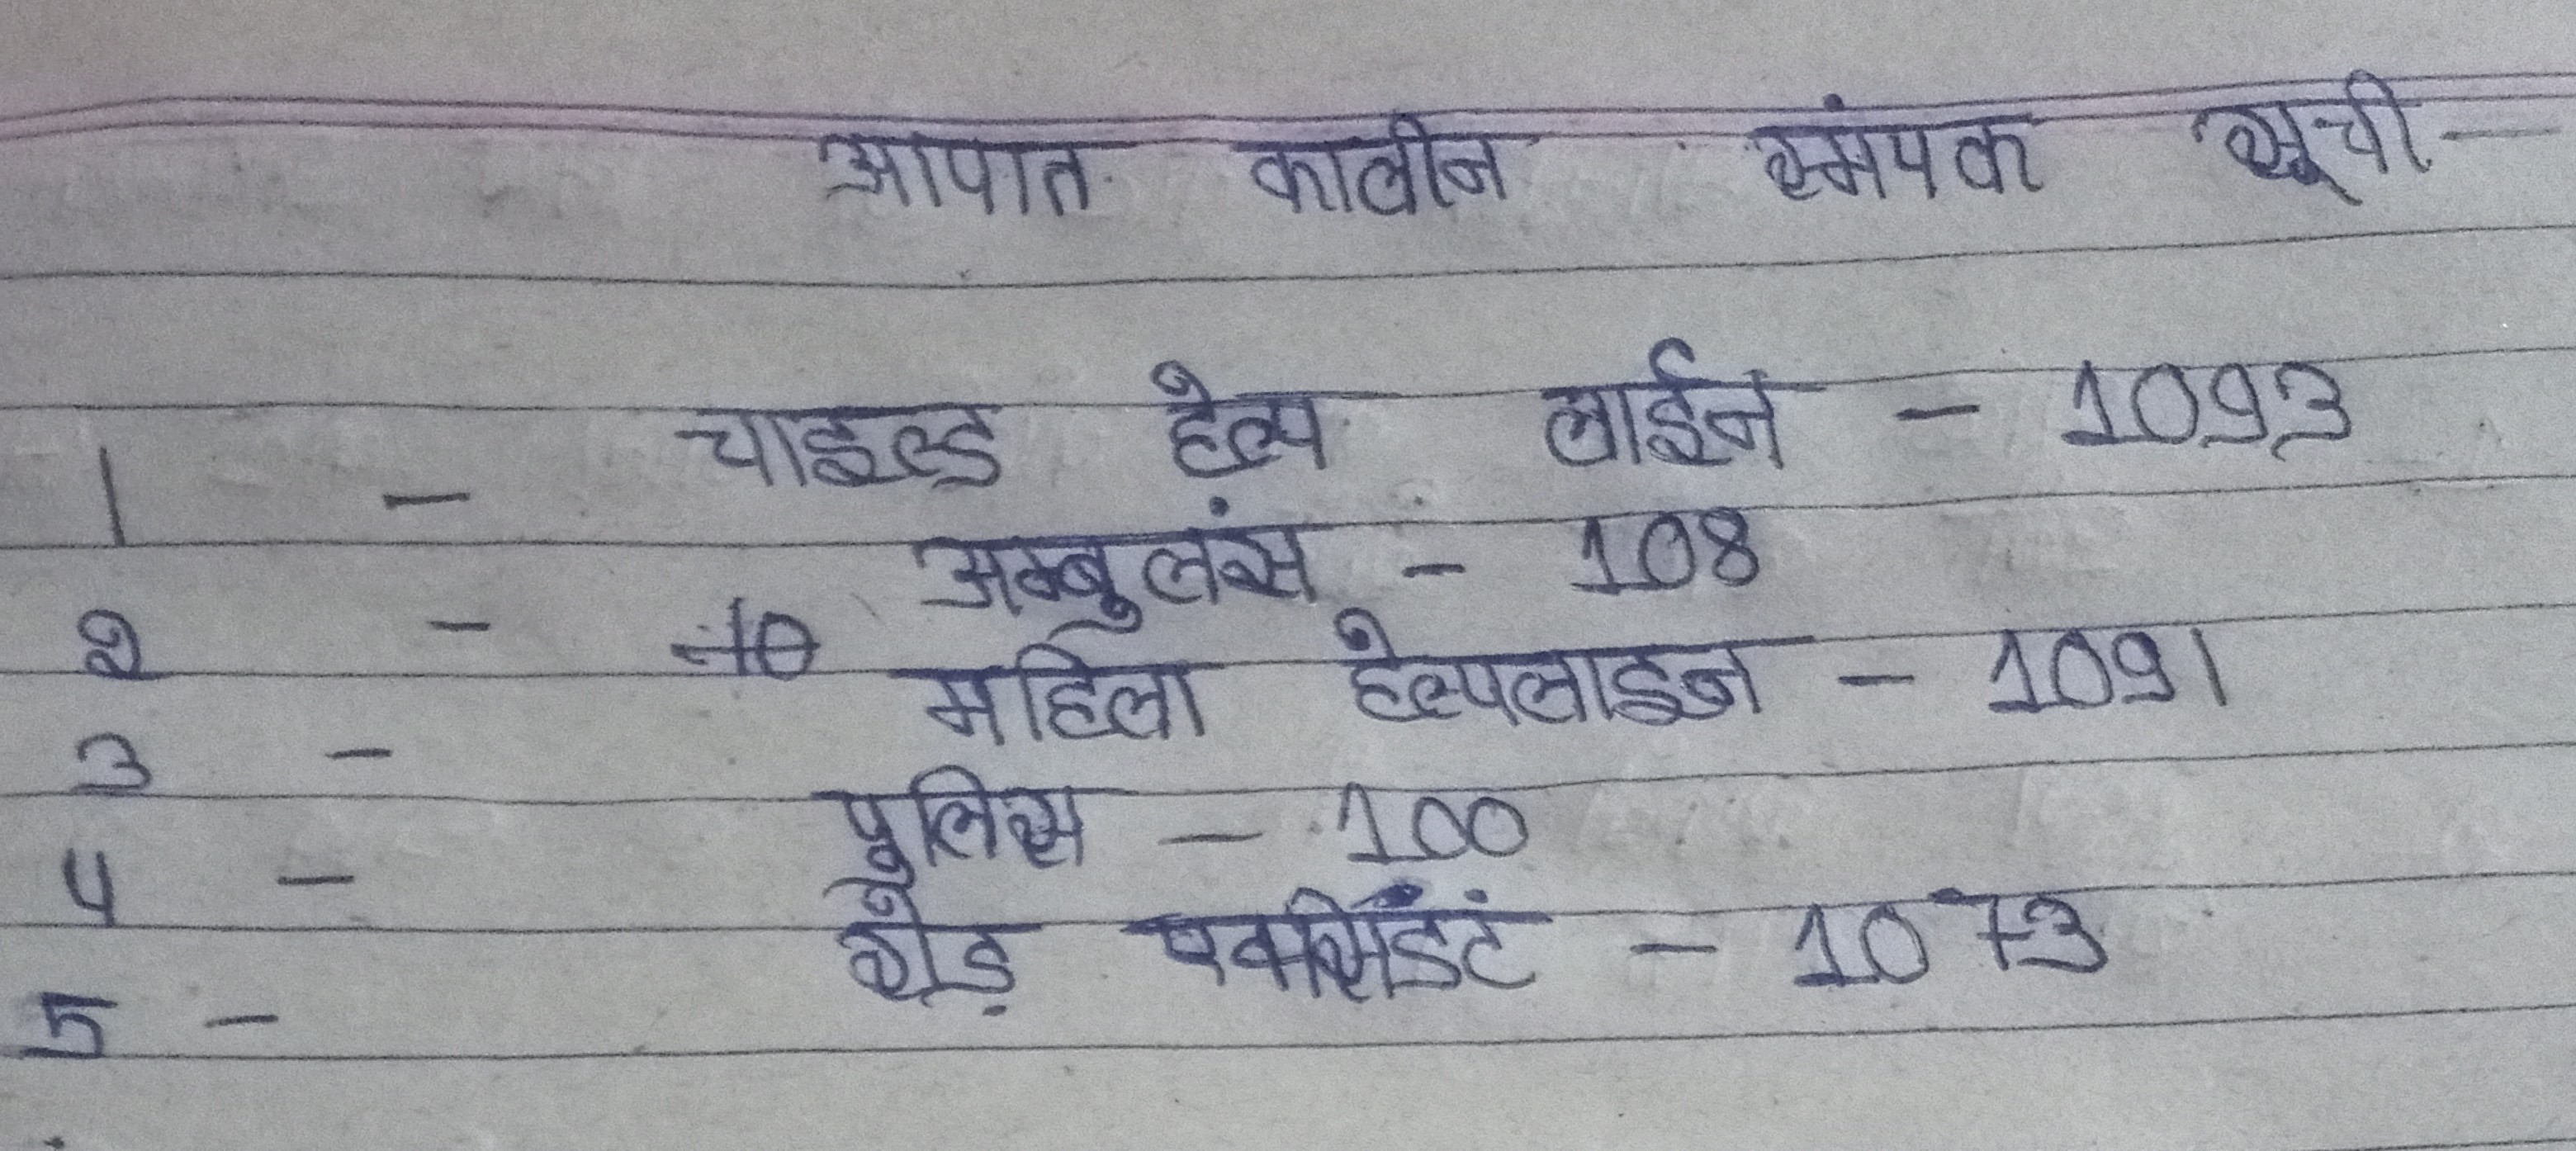 आपात कालीन स्मंपक सूची —
1 — चाइल्ड हेल्प लाईन – 1093
2 — अम्बुलंस – 108
3 — महिला हेल्पलाइन – 1091
4 — पुलिस – 100
5 — रोड़ एक्सीडंट – 1073